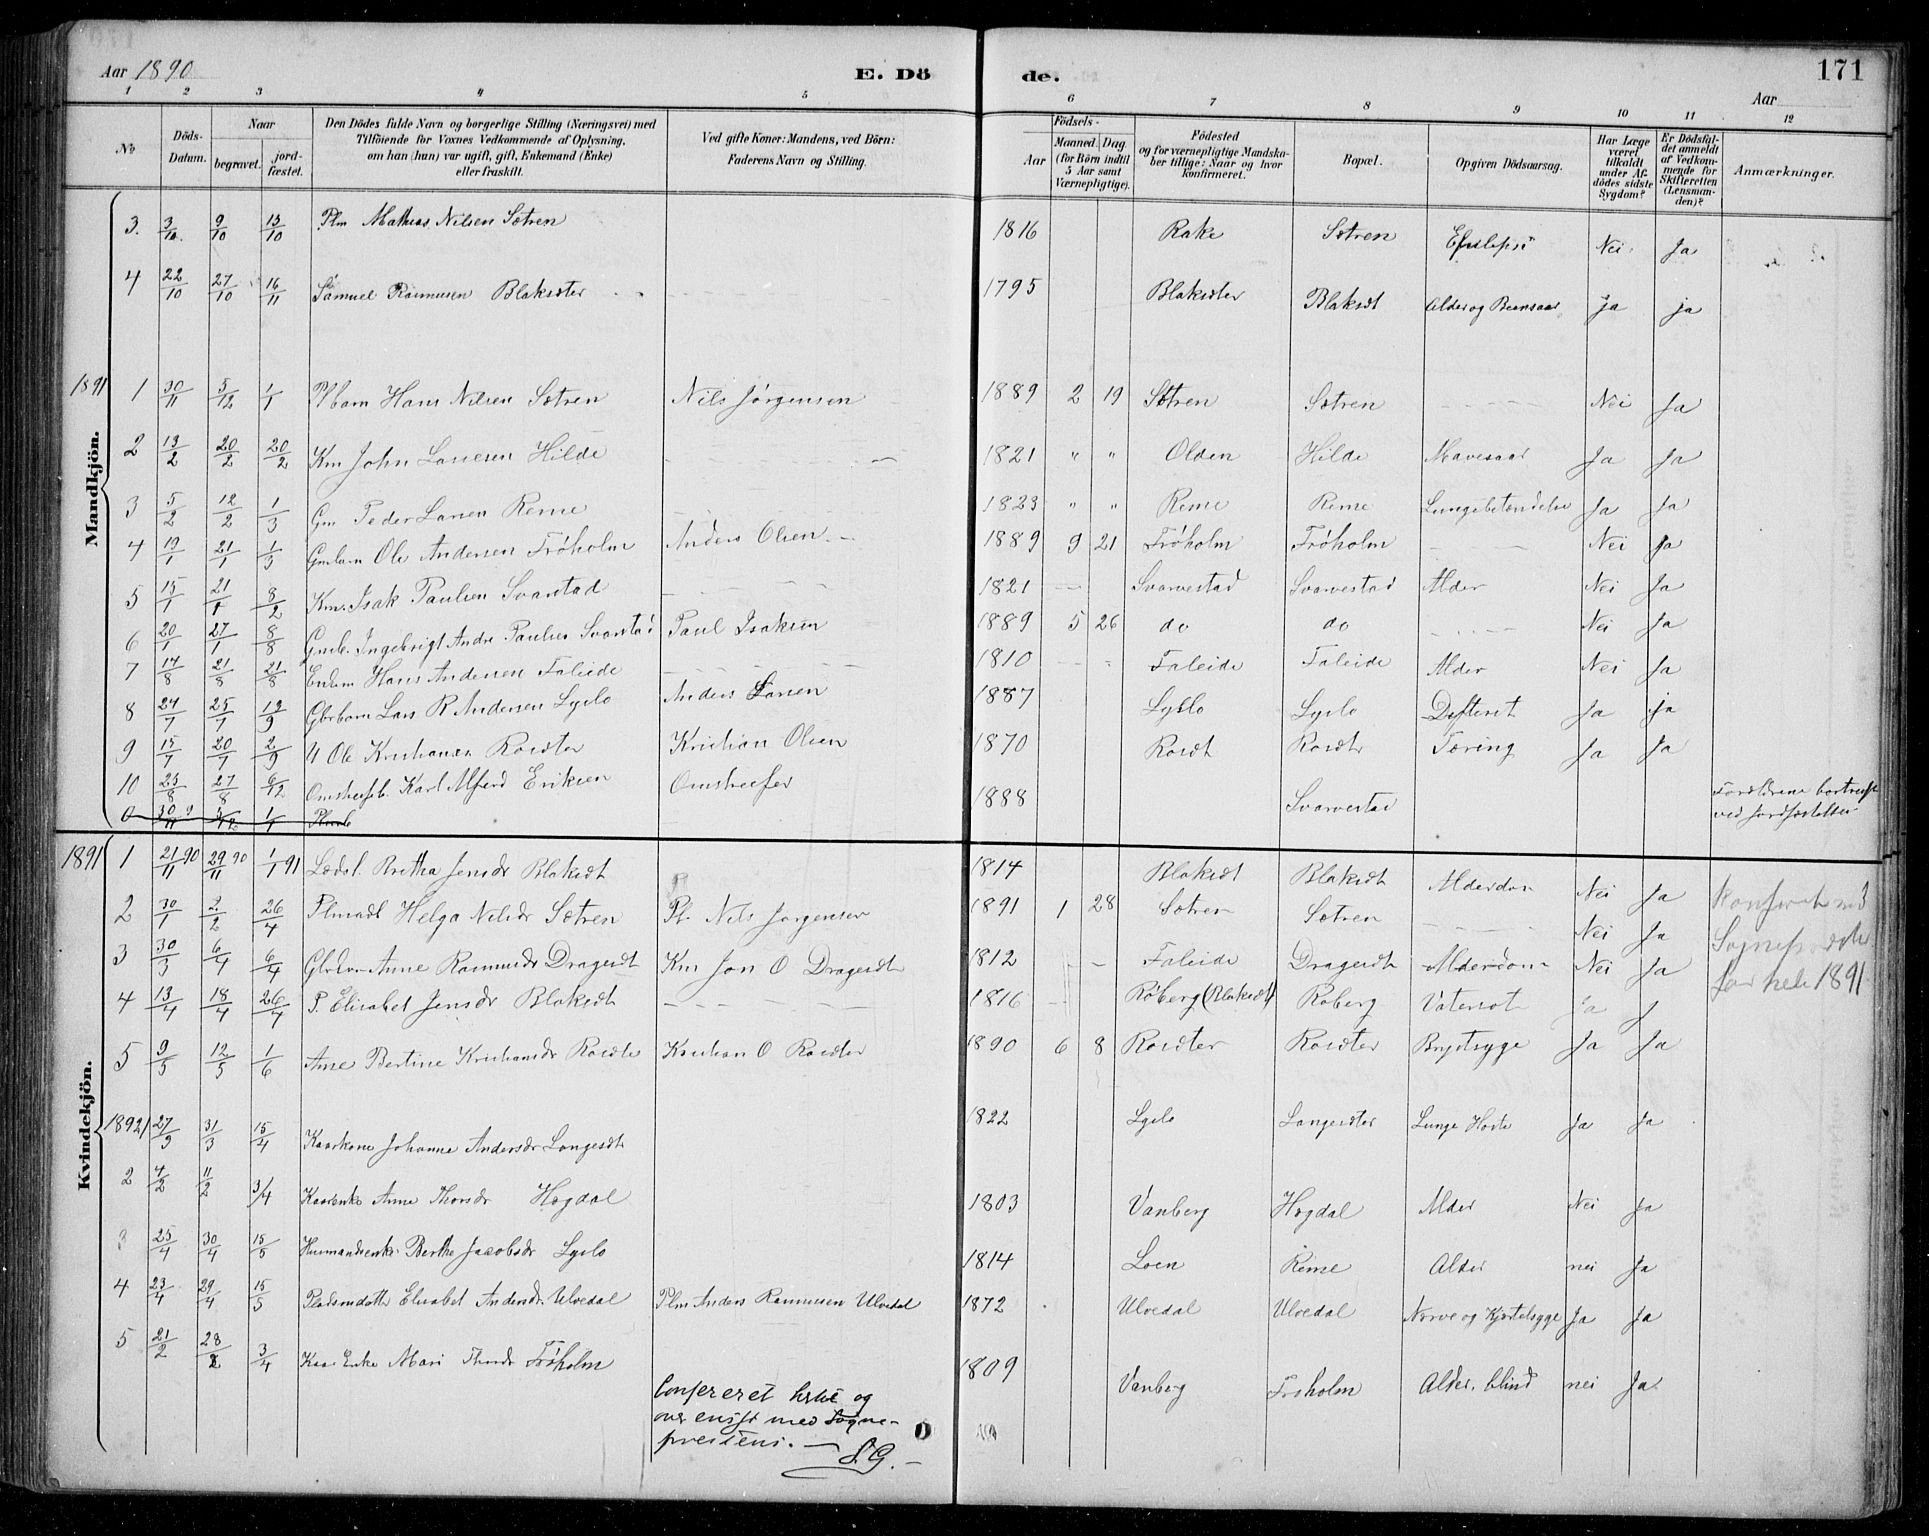 Aar 1890 E. Dö de. 171
Aar
1 2 3 4 5 6 7 8 9 10 11 12
No Döds-Datum. Naar begravet. jord-fæstet. Den Dödes fulde Navn og borgerlige Stilling (Næringsvei) med Tilföiende for Voxnes Vedkommende af Oplysning, om han (hun) var ugift, gift, Enkemand (Enke) eller fraskilt. Ved gifte Koner: Mandens, ved Börn: Faderens Navn og Stilling. Födsels- Aar Maaned. Dag (for Börn indtil 5 Aar samt Værnepligtige). Födested og for værnepligtige Mandska-ber tillige: Naar og hvor konfirmeret. Bopæl. Opgiven Dödsaarsag. Har Læge været tilkaldt under Af-dödes sidste Sygdom? Er Dödsfal-det anmeldt af Vedkom-mende for Skifteretten (Lensman-den)? Anmærkninger.
Mandkjön.
3. 3/10 9/10 15/10 Plm Mathias Nilsen Sætren 1816 Rake Sætren Epilepsi Nei Ja
4 22/10 27/10 16/11 Samuel Rasmusen Blaksæter 1795 Blaksæter Blaksæt Alder og Beensaar Ja ja
1891 1 30/11 5/12 1/1 Plbarn Hans Nilsen Sætren Nils Jørgensen 1889 2 19 Sætren Sætren Nei Ja
2 13/2 20/2 20/2 Km John Larsen Hilde 1821 " " Olden Hilde Mavesaar Ja Ja
3 5/2 12/2 1/3 Gm Peder Larsen Reme 1823 " " Reme Reme Lungebetændelse Ja Ja
4 19/1 21/1 1/3 Gmbarn Ole Andersen Frøholm Anders Olsen 1889 9 21 Frøholm Frøholm Nei Ja
5 15/1 21/1 8/2 Km. Isak Paulsen Svarstad 1821 Svarvestad Svarvestad Alder Nei Ja
6 20/1 27/1 8/8 Gmb. Ingebrigt Andr Paulsen Svarstad Paul Isaksen 1889 5 26 do do Nei Ja
7 14/8 21/8 21/8 Enkem Hans Andersen Faleide 1810 Faleide Faleide Alder Nei Ja
8 24/7 25/7 19/9 Gbrbarn Lars R Andersen Lyslo Anders Larsen 1887 Lyslo Lyslo Difterit Ja ja
9 15/7 20/7 2/9 U Ole Kristiansen Rosæter Kristian Olsen 1870 Rosæt Rosæter Tæring Ja Ja
10 23/8 27/8 6/12 Omstreifb. Karl Alfred Eriksen Omstreifer 1888 Svarvestad Forældrene bortreist ved Jordfæstelsen
Kvindekjön.
1891 1 21/11 90 29/11 90 1/1 91 Lædsl. Bertha Jensdr Blaksæt 1814 Blaksæt Blaksæt Alderdom Nei Ja
2 30/1 2/2 26/4 Plmadt Helga Nilsdr Sætren Pl. Nils Jørgensen 1891 1 28 Sætren Sætren Nei Ja
3 30/3 6/4 6/4 Anne Rasmusdr Dragesæt Km Jon O Dragesæt 1812 Faleide Dragesæt Alderdom Nei Ja
4 13/4 18/4 26/4 P. Elisabet Jensdr Blaksæt 1816 Røberg (Blaksæt) Roberg Vatersot Ja J
5 9/5 12/5 1/6 Anne Bertine Kristiansdr Rosæter Kristian O Rosæter 1890 6 8 Rosæter Rosæter Brystsyge Ja Ja
Konfereret med Sognepræstens for hele 1891
1892 1 27/3 31/3 15/4 Kaarkone Johanne Andersdr Langesæt 1822 Lyslo Langesæter Lunge Hoste Ja Ja
2 4/2 11/2 3/4 Kaarenke Anne Thorsdr Hogdal 1803 Vanberg Hogdal Alder Nei Ja
3 25/4 30/4 15/5 Husmandsenke Berthe Jacobsdr Lyslo 1814 Loen Reme Alder nei Ja
4 23/4 29/4 15/5 Pladsmdatter Elisabet Andersdr. Ulvedal Plm Anders Rasmusen Ulvedal 1872 Ulvedal Ulvedal Nerve og Kjertelsyge Ja Ja
5 21/2 28/2 3/4 Kaar Enke Mari Thorsdr Frøholm 1809 Vanberg Froholm Alder, blind nei Ja
Confereret hertil og
overensst med Sogne-
prestens. — S.G. —